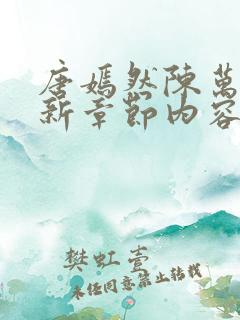 唐嫣然陳萬
新章節内容
樊虹壹
未经同意禁止转载